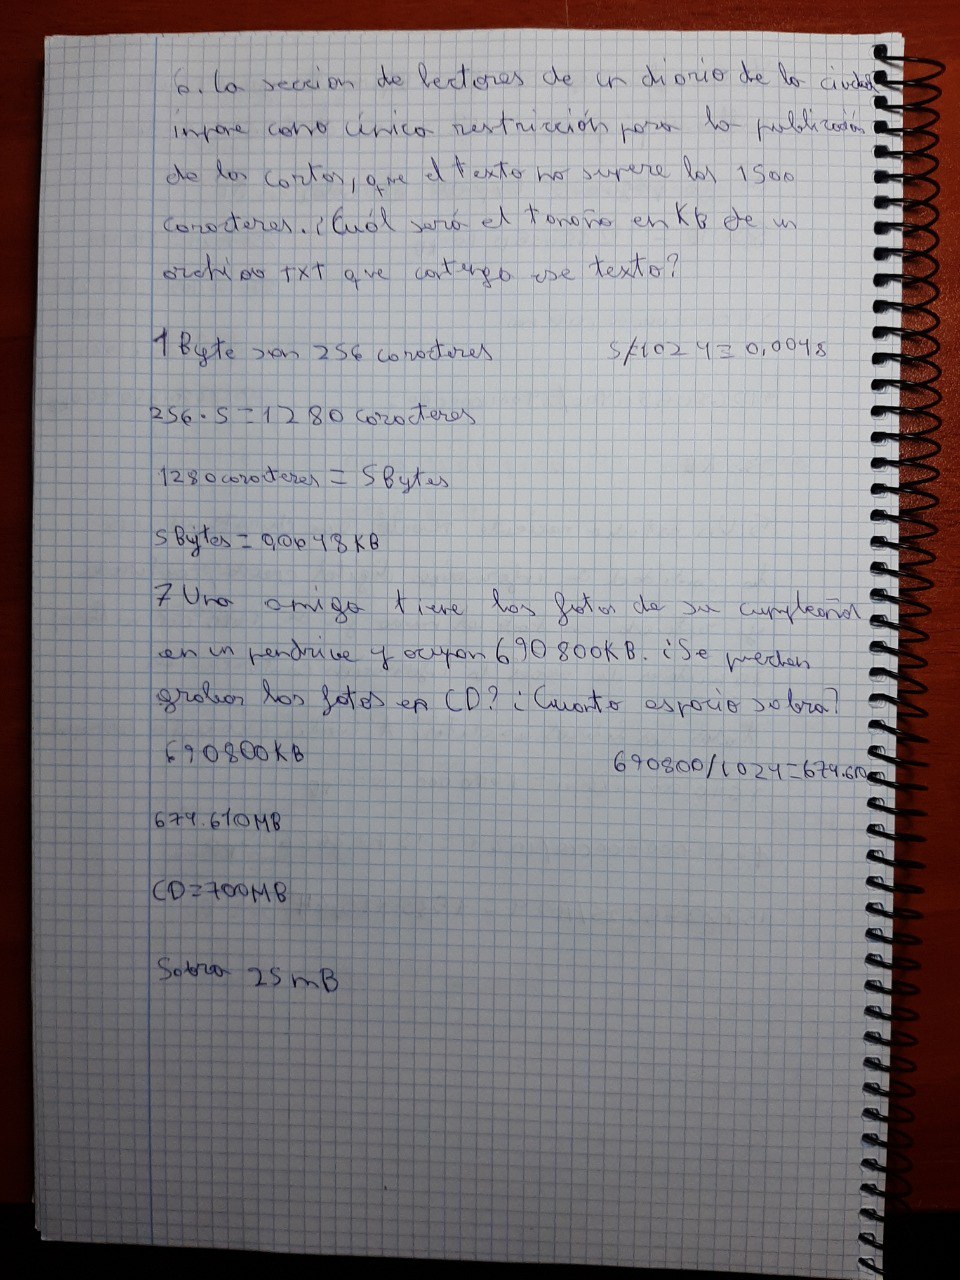 6. La sección de lectores de un diario de la ciudad
impone como única restricción para la publicación
de las cartas, que el texto no supere los 1500
caracteres. ¿Cuál será el tamaño en KB de un
archivo txt que contenga ese texto?
1 Byte son 256 caracteres 5/1024=0,0048
256·5=1280 caracteres
1280 caracteres = 5 Bytes
5 Bytes = 0,0048 KB
7 Una amiga tiene las fotos de su cumpleaños
en un pendrive y ocupan 690 800KB. ¿Se pueden
grabar las fotos en CD? ¿Cuanto espacio sobra?
690800KB 690800/1024=674.610
674.610MB
CD=700MB
Sobra 25 mB